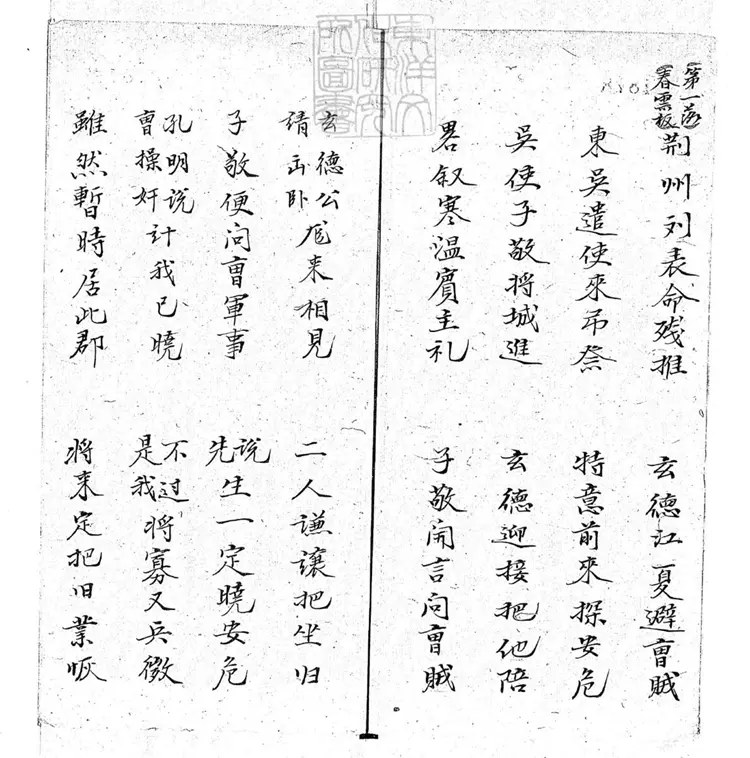 東洋文化研究所圖書
第一
春雲板
荆州刘表命残推 玄德江夏避曺賊
東吳遣使來吊祭 特意前來探安危
吳使子敬將城進 玄德迎接把他陪
畧叙寒溫賓主礼 子敬開言问曺賊
玄德公請出卧龙来相見 二人谦讓把坐归
子敬便问曺軍事 说先生一定曉安危
孔明说曺操奸计我已曉 不过是我将寡又兵微
雖然暫時居此郡 将来定把旧業恢